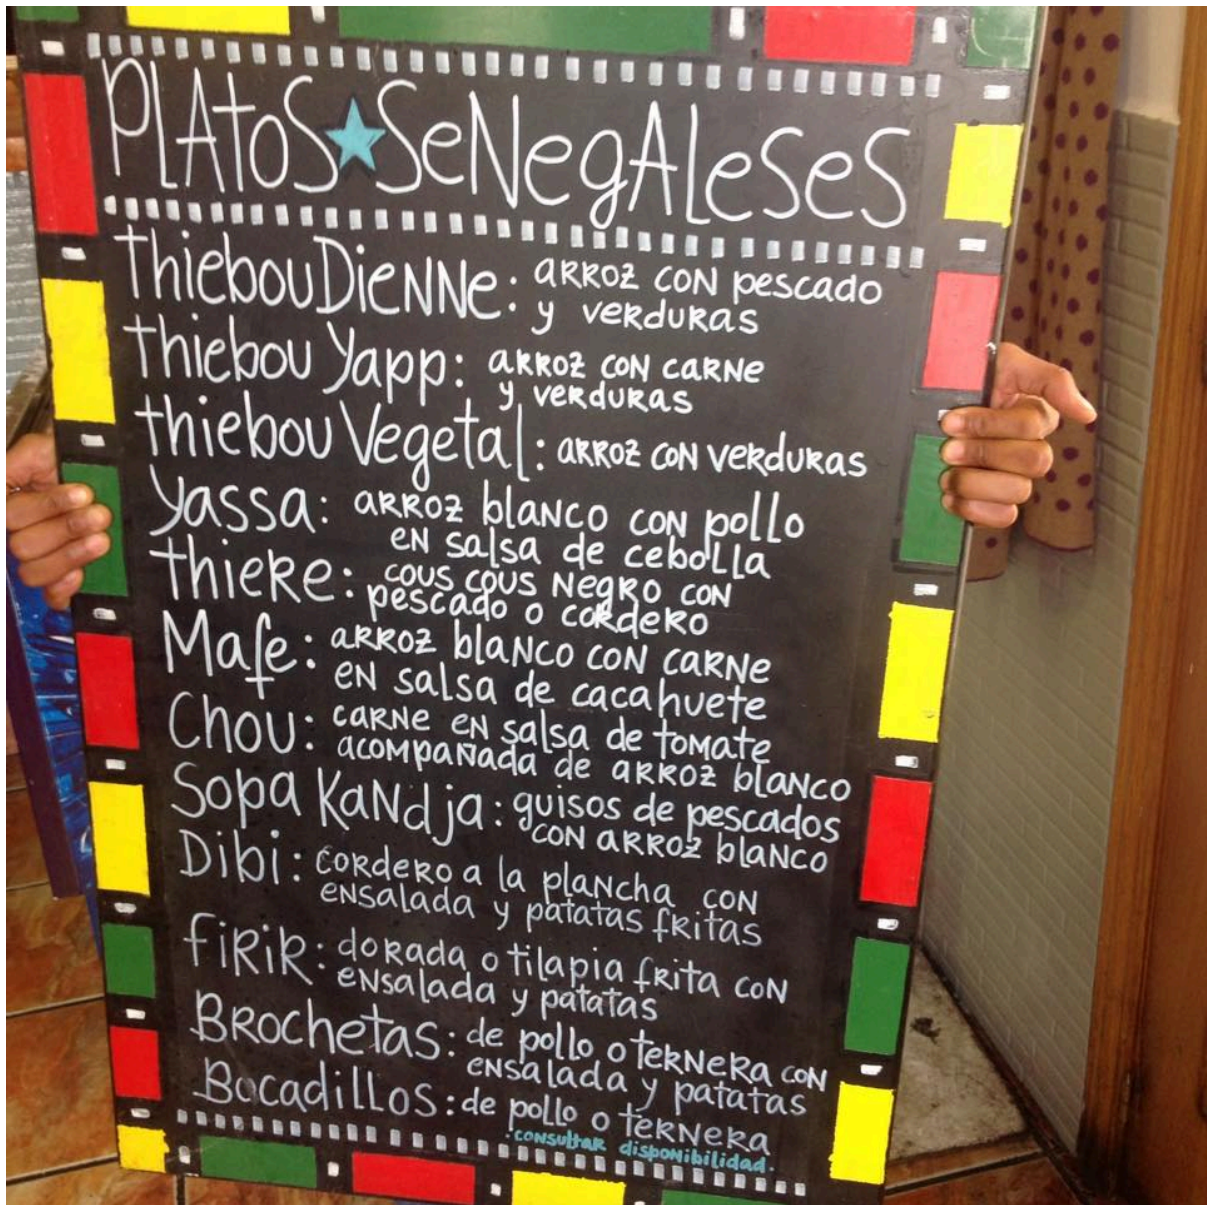 PLAtoS SeNegALeSeS
thiebouDieNNe: aRRoz coN pescado
y veRduRas
thiebou Yapp: aRRoz coN caRNe
y veRduRas
thiebou Vegetal: aRRoz coN veRduRas
Yassa: aRRoz blaNco coN pollo
eN salsa de cebolla
thieRe: cous cous NegRo coN
pescado o coRdeRo
Mafe: aRRoz blaNco coN caRNe
eN salsa de cacahuete
Chou: caRNe eN salsa de tomate
acompañada de aRRoz blaNco
Sopa KaNdja: guisos de pescados
coN aRRoz blaNco
Dibi: coRdeRo a la plaNcha coN
eNsalada y patatas fRitas
fiRiR: doRada o tilapia fRita coN
eNsalada y patatas
BRochetas: de pollo o teRNeRa coN
eNsalada y patatas
Bocadillos: de pollo o teRNeRa
.consultar disponibilidad.